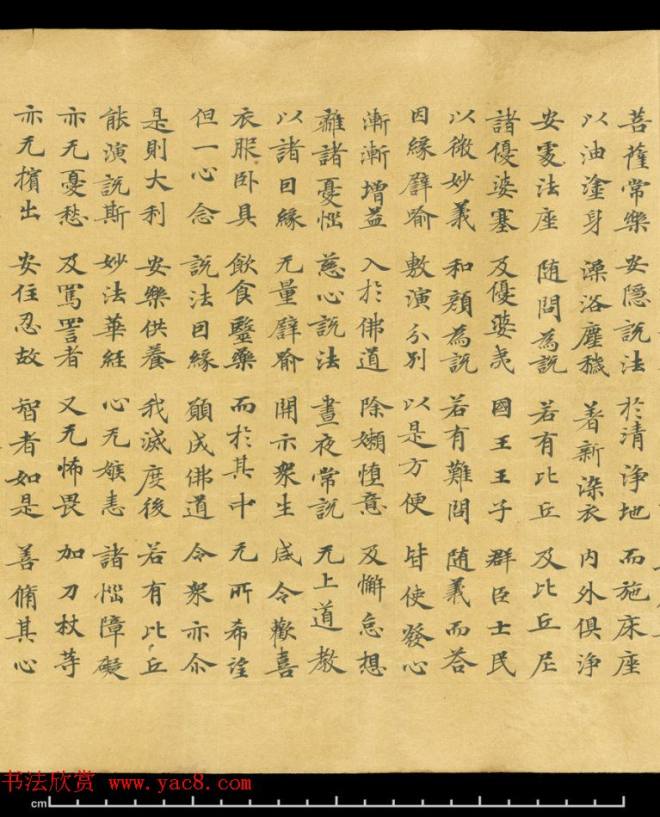 菩薩常樂 安隱說法 於清淨地 而施床座
以油塗身 澡浴塵穢 著新淨衣 內外俱淨
安處法座 随問為說 若有比丘 及比丘尼
諸優婆塞 及優婆夷 國王王子 群臣士民
以微妙義 和顏為說 若有難問 随義而答
因緣譬喻 敷演分別 以是方便 皆使發心
漸漸增益 入於佛道 除嬾惰意 及懈怠想
離諸憂惱 慈心說法 晝夜常說 无上道教
以諸因緣 无量譬喻 開示衆生 咸令歡喜
衣服卧具 飲食醫藥 而於其中 无所希望
但一心念 說法因緣 願成佛道 令衆亦尒
是則大利 安樂供養 我滅度後 若有比丘
能演說斯 妙法華經 心无嫉恚 諸惱障礙
亦无憂愁 及罵詈者 又无怖畏 加刀杖等
亦无擯出 安住忍故 智者如是 善脩其心
书法欣赏 www.yac8.com
cm